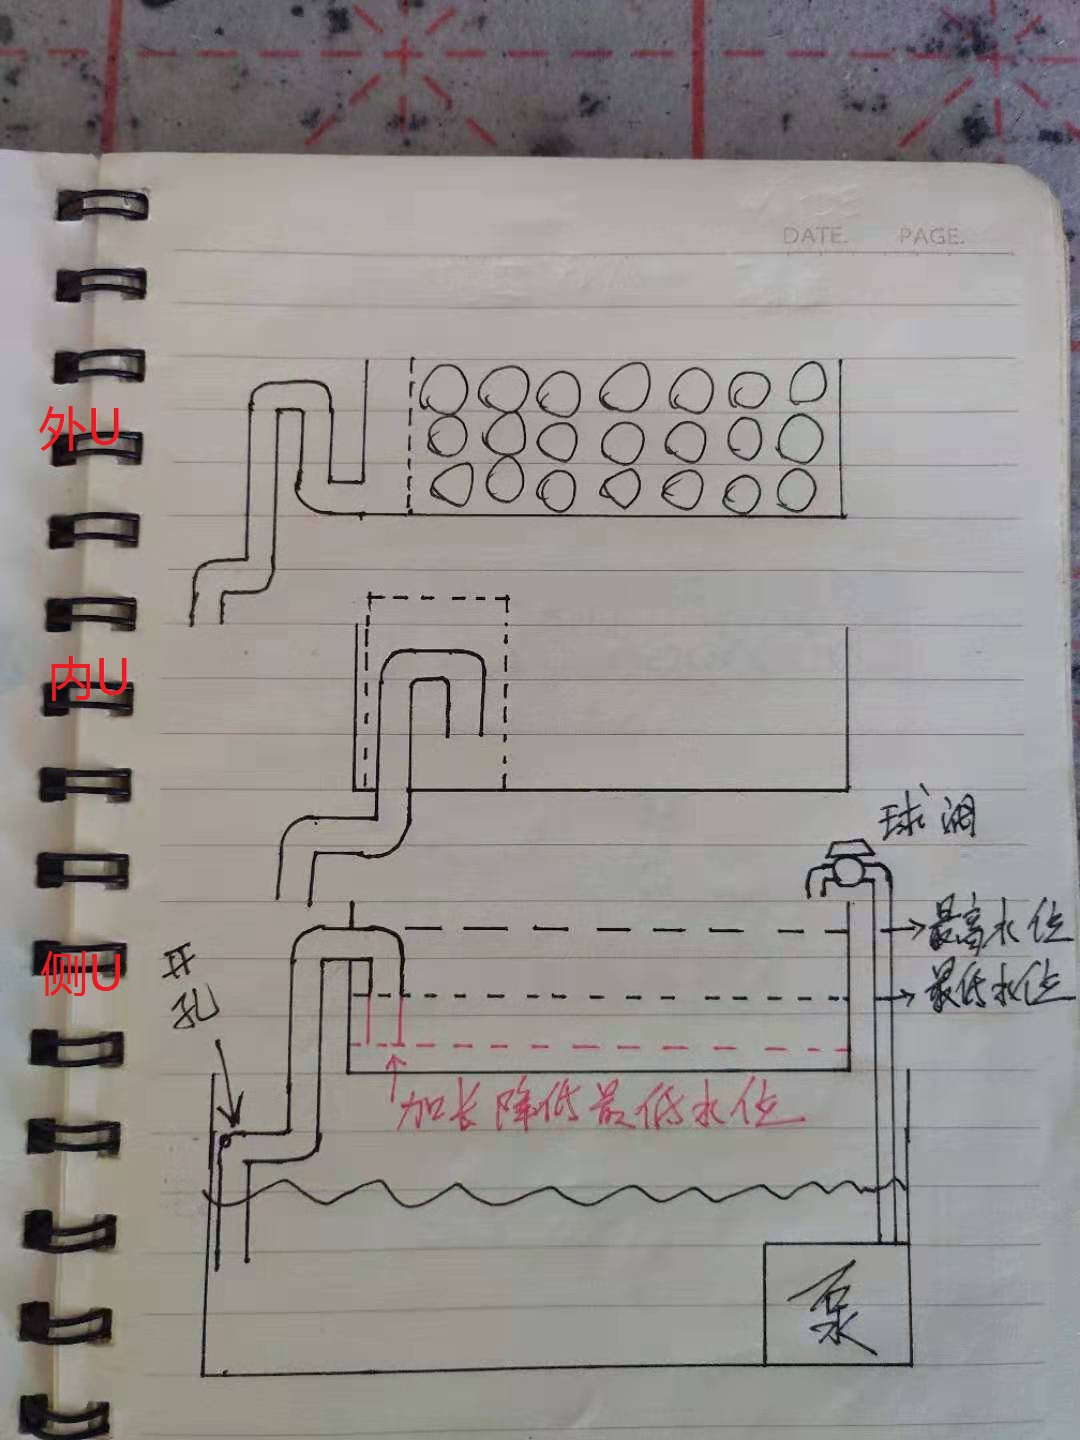 DATE.
PAGE.
外U
内U
球阀
最高水位
侧U
开孔
最低水位
加长降低最低水位
泵